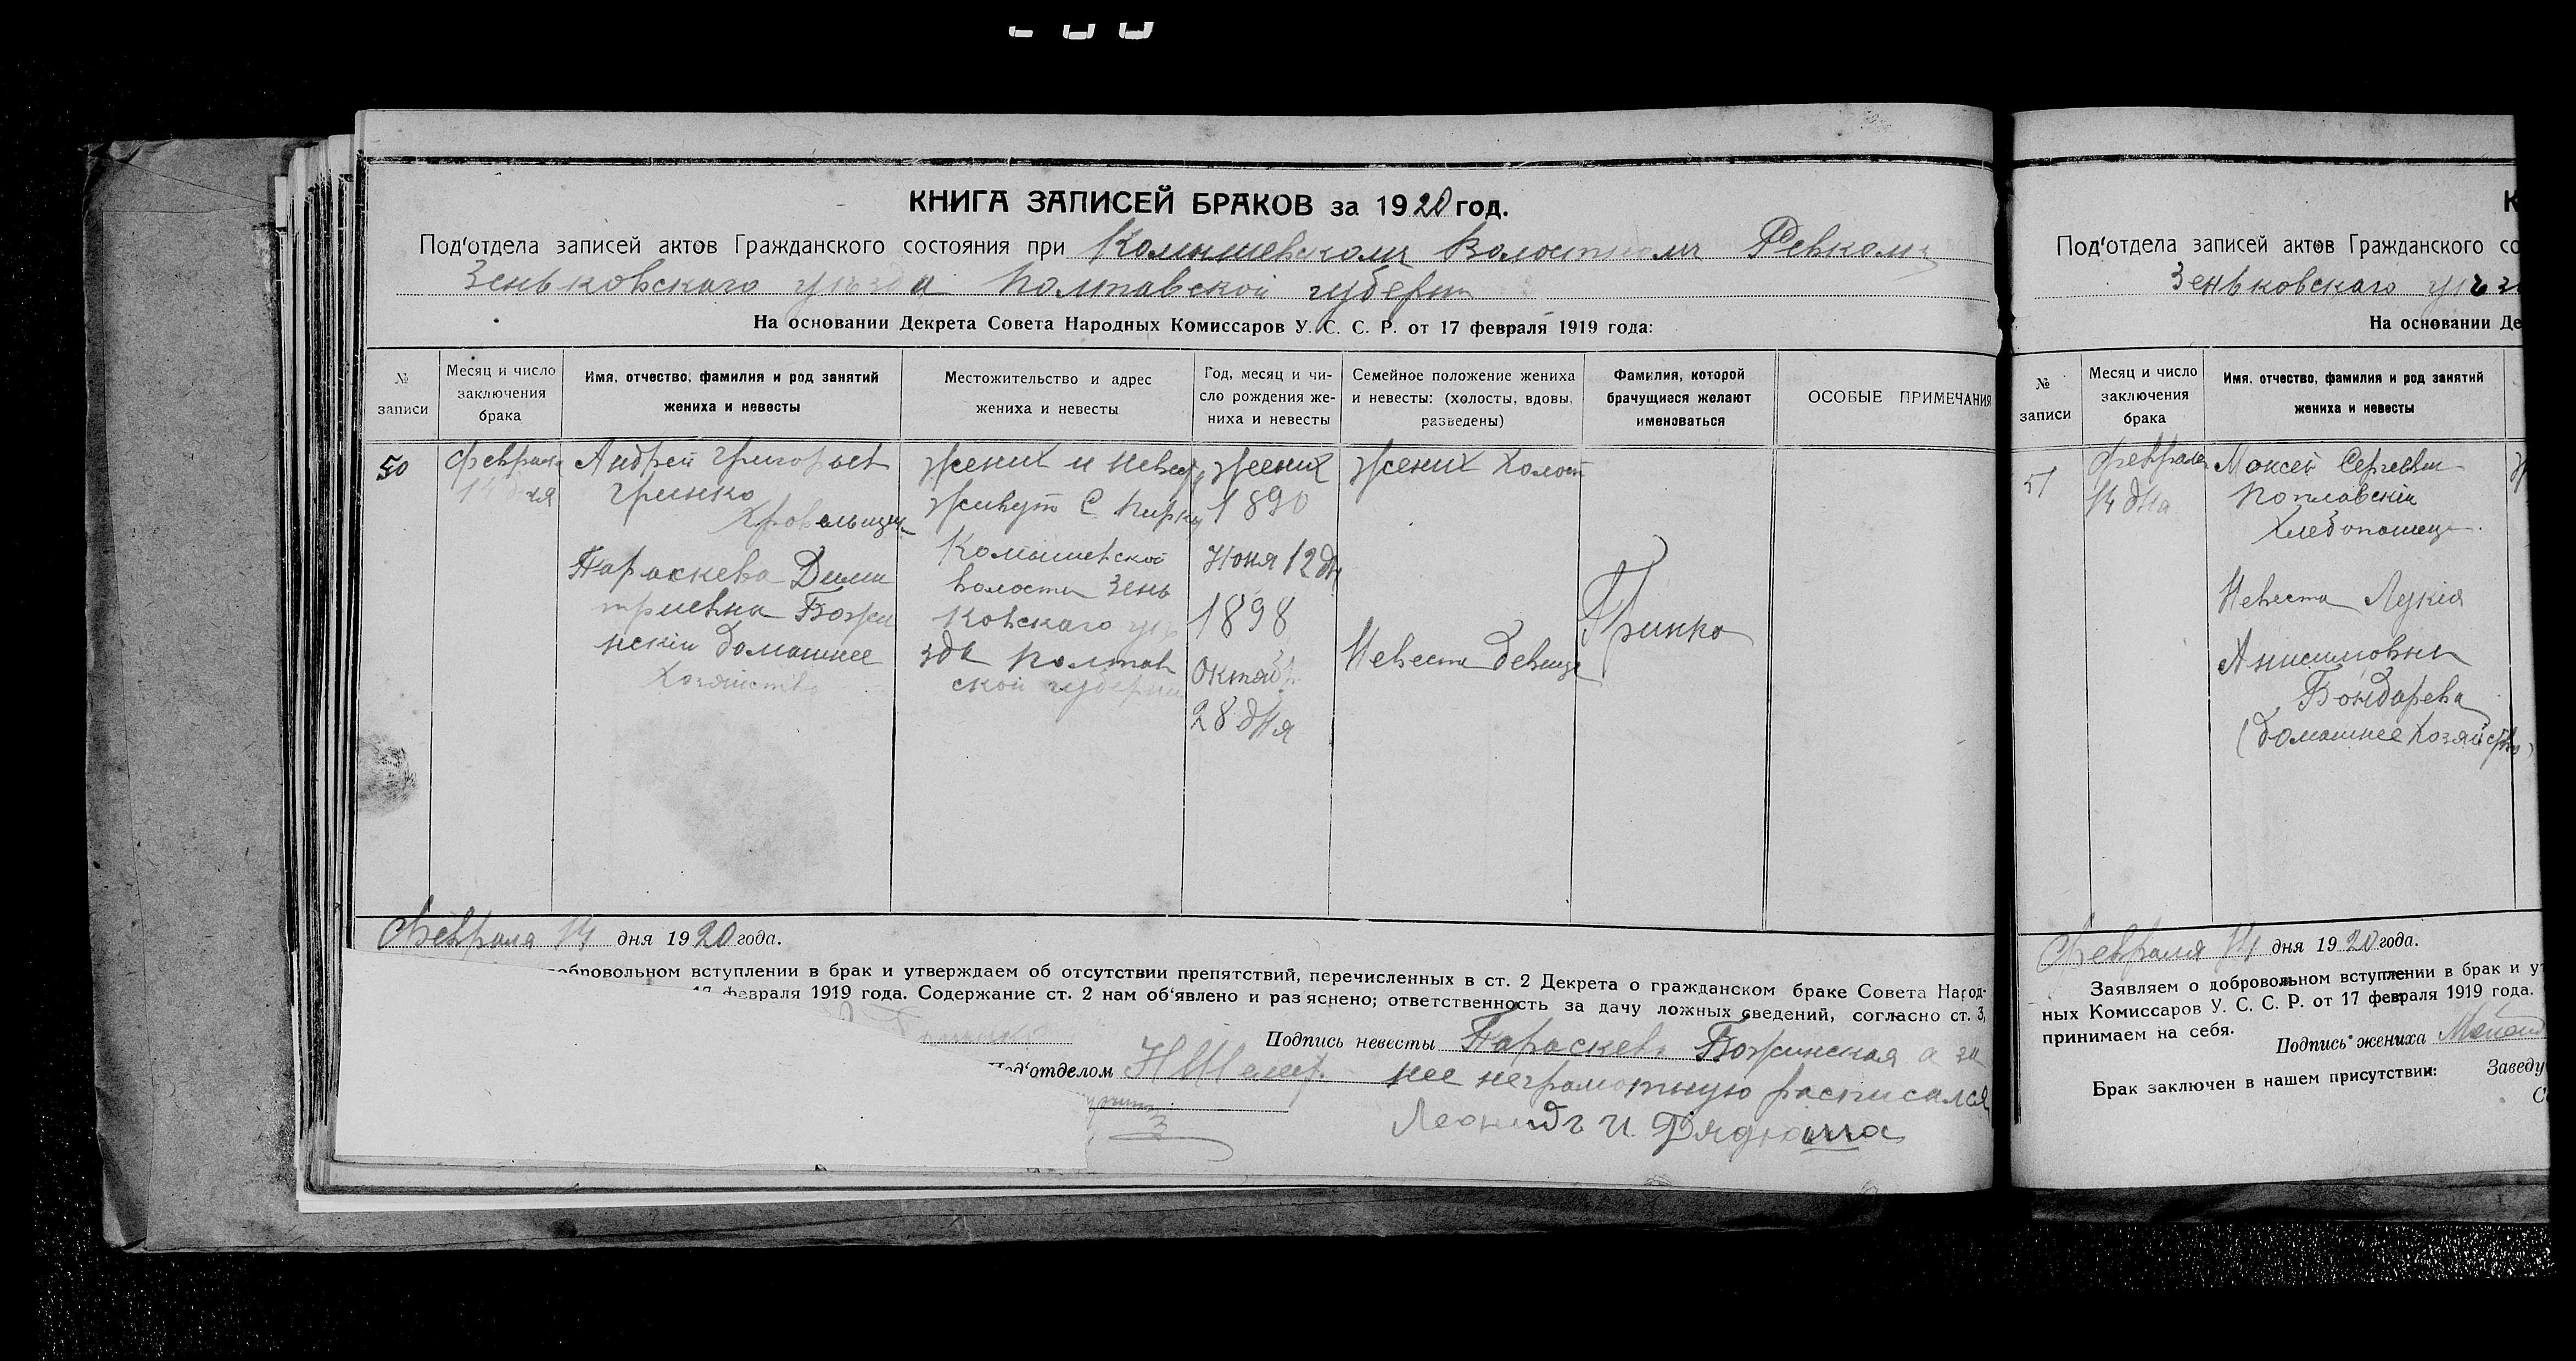 КНИГА ЗАПИСЕЙ БРАКОВ за 1920 год.
Под'отдела записей актов Гражданского состояния при Комышевском Волостном Ревкоме
Зеньковскаго уезда Полтавской губерн
На основании Декрета Совета Народных Комиссаров У. С. С. Р. от 17 февраля 1919 года:
№ записи
Месяц и число заключения брака
Имя, отчество, фамилия и род занятий жениха и невесты
Местожительство и адрес жениха и невесты
Год, месяц и число рождения жениха и невесты
Семейное положение жениха и невесты: (холосты, вдовы, разведены)
Фамилия, которой брачущиеся желают именоваться
ОСОБЫЕ ПРИМЕЧАНИЯ
50
Февраля
14 дня
Андрей Григорьев
Гринко
Параскева Дими
триевна Божи
нский домашнее
хозяйство
Жених и невес
живут С
Комышевской
волости Зень
ковскаго уе
зда Полтав
ской губернии
Жених
1890
Июня 12 дн
1898
Октяб
28 дня
Жених холост
Невеста девица
Гринко
Февраля 14 дня 1920 года.
добровольном вступлении в брак и утверждаем об отсутствии препятствий, перечисленных в ст. 2 Декрета о гражданском браке Совета Народ-
17 февраля 1919 года. Содержание ст. 2 нам об'явлено и раз яснено; ответственность за дачу ложных сведений, согласно ст. 3,
Подпись невесты Параскева Божинская а за
Под'отделом
нее неграмотную расписался
Леонидъ И.
К
Под'отдела записей актов Гражданского со
Зеньковскаго уъз
На основании Де
№ записи
Месяц и число заключения брака
Имя, отчество, фамилия и род занятий жениха и невесты
51
Февраля
14 дня
Моксей Сергеевич
Поплавскій
Хлебопашец
Невеста Лукія
Анисимовна
Бондарева
(домашнее хозяйство)
Февраля 14 дня 1920 года.
Заявляем о добровольном вступлении в брак и ут
ных Комиссаров У. С. С. Р. от 17 февраля 1919 года.
принимаем на себя.
Подпись жениха
Брак заключен в нашем присутствии: Заведу
С